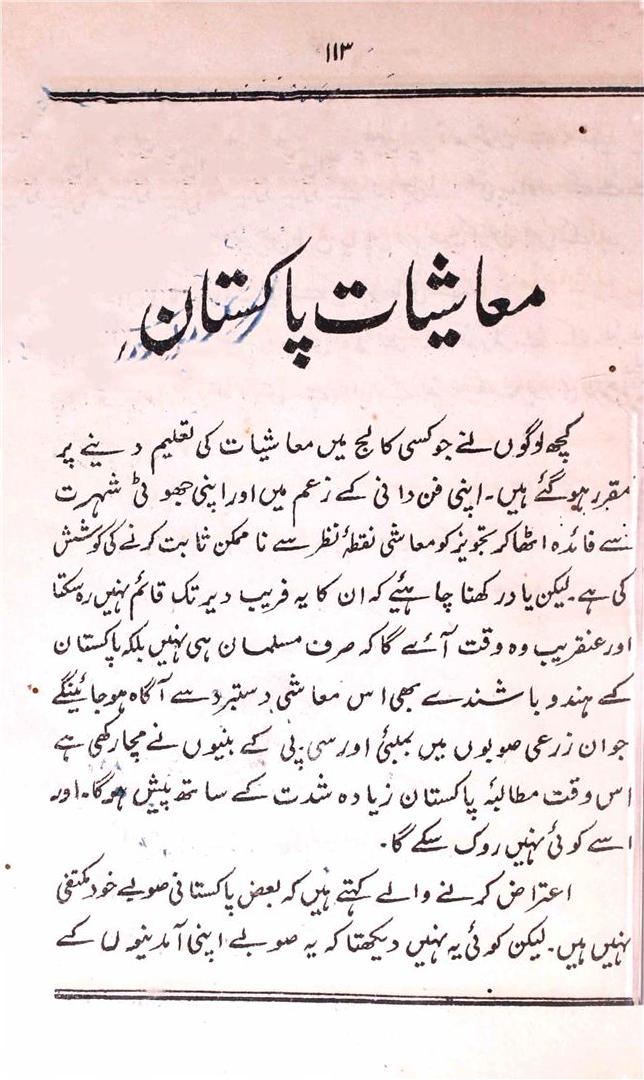 ۱۱۳
معاشیات پاکستان
کچھ لوگوں نے جو کسی کالج میں معاشیات کی تعلیم دینے پر
مقرر ہو گئے ہیں۔ اپنی فن دانی کے زعم میں اور اپنی جھوٹی شہرت
سے فائدہ اٹھا کر تجویز کو معاشی نقطۂ نظر سے ناممکن ثابت کرنے کی کوشش
کی ہے۔ لیکن یاد رکھنا چاہئیے کہ ان کا یہ فریب دیر تک قائم نہیں رہ سکتا
اور عنقریب وہ وقت آئے گا کہ صرف مسلمان ہی نہیں بلکہ پاکستان
کے ہندو باشندے بھی اس معاشی دستبرد سے آگاہ ہو جائینگے
جو ان زرعی صوبوں میں بمبئی اور سی۔پی کے بنیوں نے مچا رکھی ہے
اس وقت مطالبۂ پاکستان زیادہ شدت کے ساتھ پیش ہوگا۔ اور
اسے کوئی نہیں روک سکے گا۔
اعتراض کرنے والے کہتے ہیں کہ بعض پاکستانی صوبے خود مکتفی
نہیں ہیں۔ لیکن کوئی یہ نہیں دیکھتا کہ یہ صوبے اپنی آمدنیوں کے